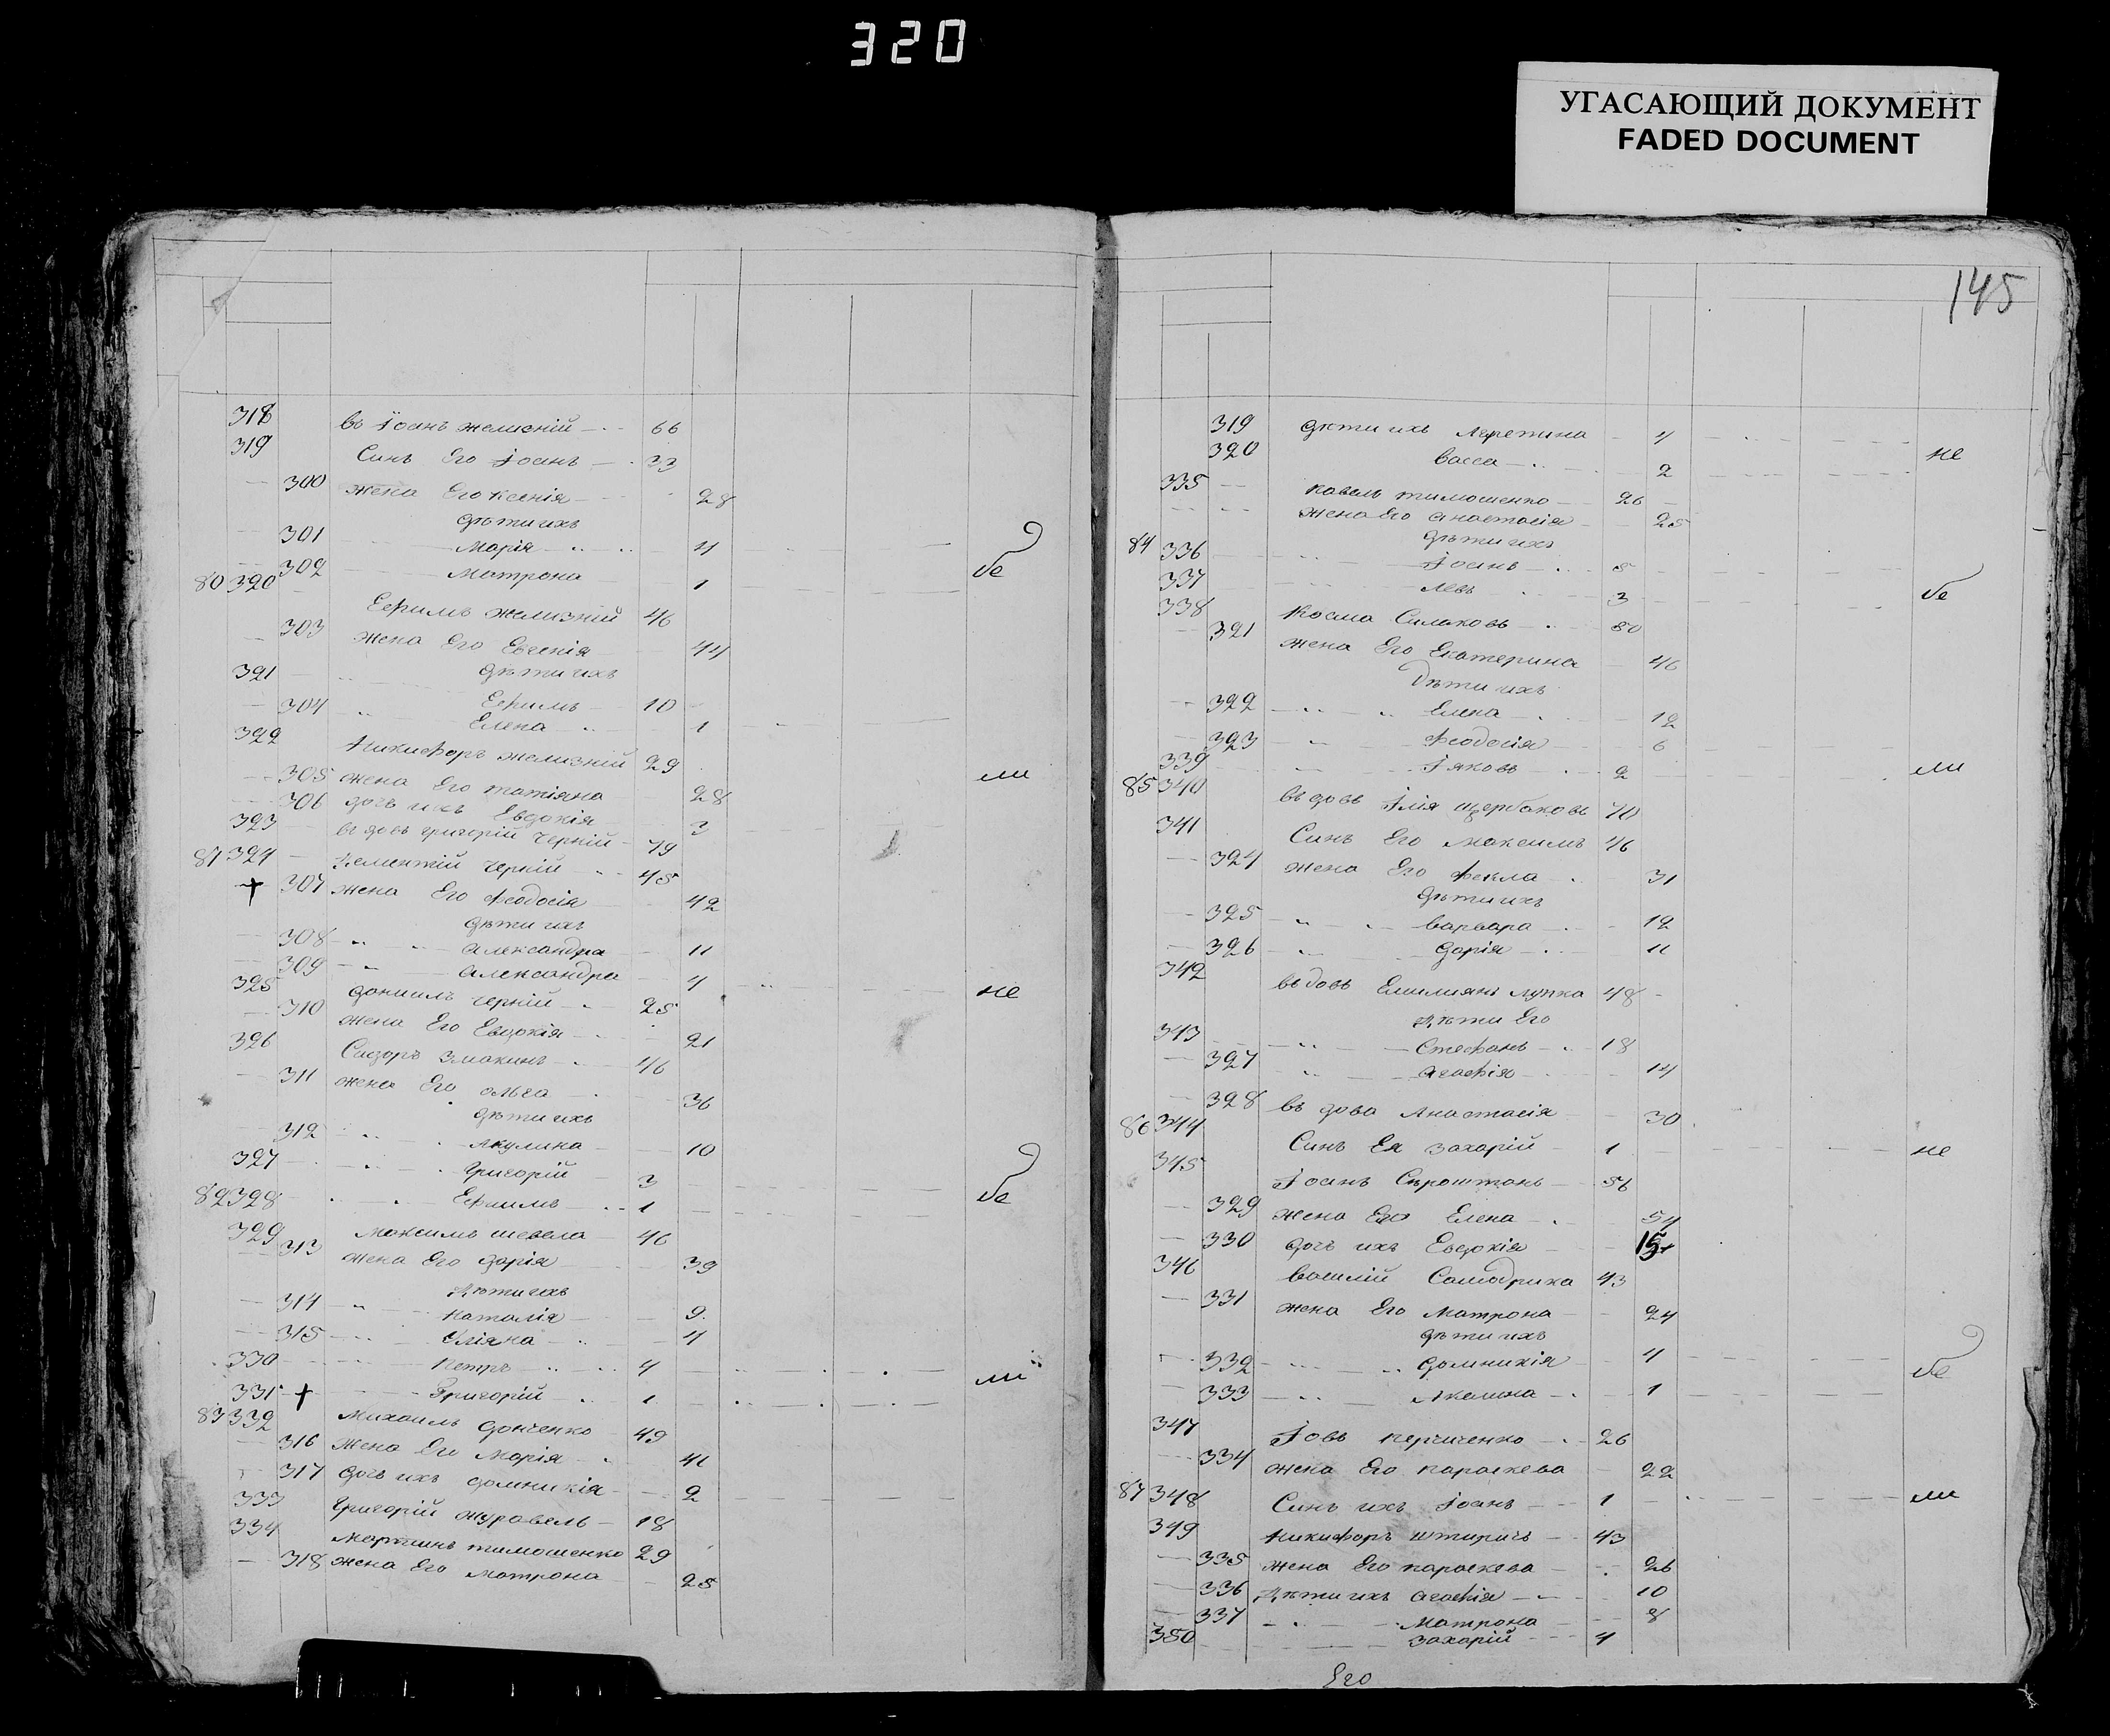 320
УГАСАЮЩИЙ ДОКУМЕНТ
FADED DOCUMENT
145
318 въ Іоанъ желизній 66
319 Синъ Его Іоанъ 33
300 жена Его ксенія 28
дѣти ихъ
301 Марія 4
302 Матрона 1 бе
80 320 Ефимъ желизній 46
303 жена Его Евгенія 44
дѣти ихъ
321 Ефимъ 10
304 Елена 1
322 Никифоръ желизній 29
305 жена Его татіяна 28 ли
306 дочь ихъ Евдокія 3
323 въдовъ григорій Черній 79
81 324 Дементій Черній 45
+ 307 жена Его Феодосія 42
дѣти ихъ
308 александра 11
309 александра 4
325 даніилъ Черній 25 не
310 жена Его Евдокія 21
326 Сидоръ 46
311 жена Его ольга 36
дѣти ихъ
312 Акулина 10
327 григорій 3
82 328 Ефимъ 1 бе
329 Максимъ шевела 46
313 жена Его дарія 39
Дѣти ихъ
314 Наталія 9
315 Уліяна 4
330 Петръ 4 ли
331 + Григорій 1
83 332 Михаилъ донченко 49
316 Жена Его Марія 41
317 дочь ихъ домникія 2
333 Григорій журавель 18
334 Мартинъ тимошенко 29
318 жена Его Матрона 25
319 дѣти ихъ 4
320 васса 2 не
335 павелъ тимошенко 26
жена Его анастасія 25
дѣти ихъ
84 336 Іоанъ 5
337 Левъ 3 бе
338 Косма Силаковъ 50
321 жена Его Екатерина 46
Дѣти ихъ
322 Елена 12
323 Феодосія 6
339 Іяковъ 2 ли
85 340 въдовъ Ілія щербаковъ 70
341 Синъ Его Максимъ 46
324 жена Его Фекла 31
дѣти ихъ
325 варвара 12
326 дарія 11
342 въдовъ Емилиянъ лупка 48
Дѣти Его
343 Стефанъ 18
327 агафія 14
328 въдова Анастасія 30
86 344 Синъ Ея Захарій 1 не
345 Іоанъ Сыроштанъ 56
329 жена Его Елена 54
330 дочь ихъ Евдокія 15
346 Василій 43
331 жена Его Матрона 24
дѣти ихъ
332 домникія 4 бе
333 Акелина 1
347 Іовъ 26
334 жена Его параскева 22
87 348 Синъ ихъ Іоанъ 1 ли
349 Никифоръ 43
335 жена Его параскева 26
336 Дѣти ихъ агафія 10
337 Матрона 8
350 Захарій 4
Его